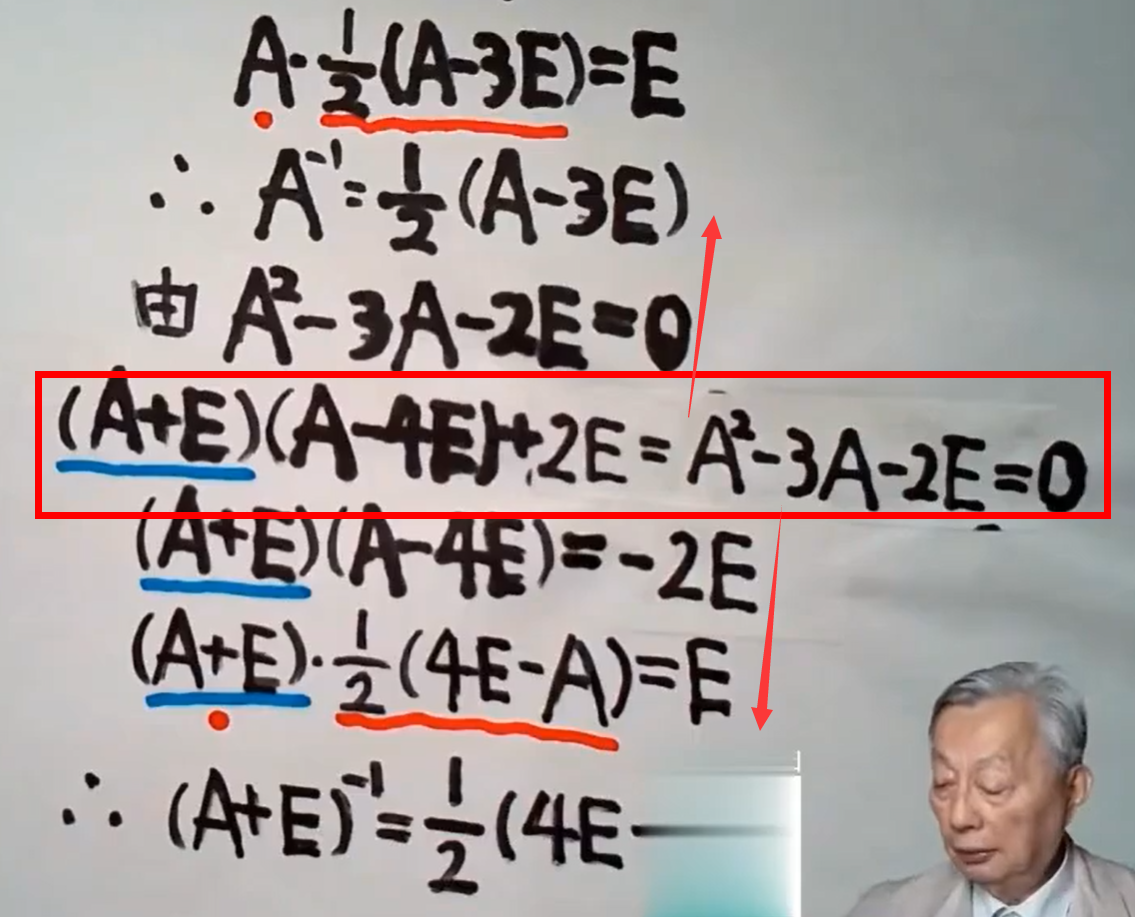 A·½(A-3E)=E
∴ A⁻¹=½(A-3E)
由 A²-3A-2E=0
(A+E)(A-4E)+2E=A²-3A-2E=0
(A+E)(A-4E)=-2E
(A+E)·½(4E-A)=E
∴ (A+E)⁻¹=½(4E-